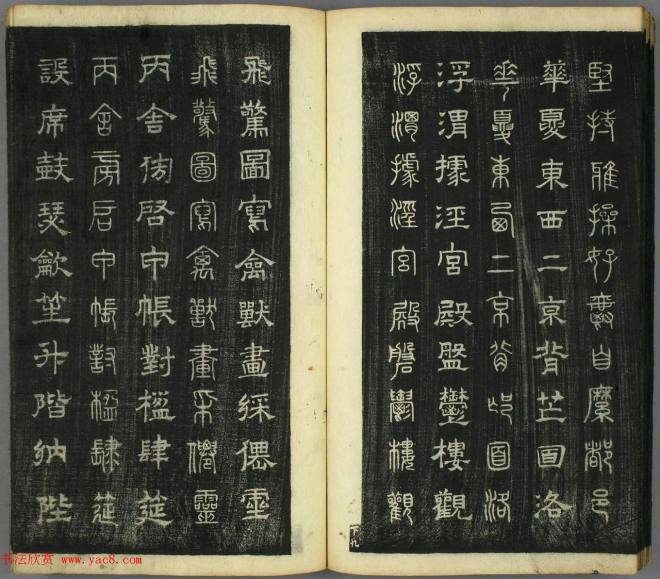 堅持雅操好爵自縻都邑
華夏東西二京背芒面洛
華夏東西二京背邙面洛
浮渭據涇宮殿盤鬱樓觀
浮渭據涇宮殿盤鬱樓觀
飛驚圖寫禽獸畫綵僊靈
飛驚圖寫禽獸畫采僊靈
丙舍傍啓甲帳對楹肆筵
丙舍旁启甲帳對楹肆筵
設席鼓瑟龡笙升階納陛
书法欣赏 www.yac8.com